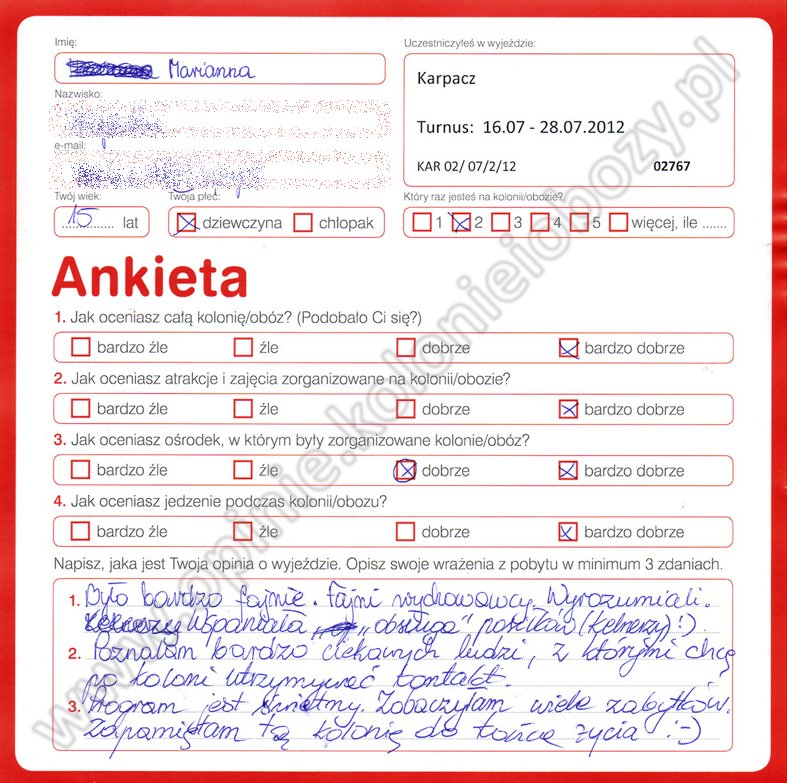 Imię:
Marianna
Uczestniczyłeś w wyjeździe:
Karpacz
Turnus: 16.07 - 28.07.2012
KAR 02/ 07/2/12 02767
Nazwisko:
e-mail:
Twój wiek:
15 lat
Twoja płeć:
dziewczyna chłopak
Który raz jesteś na kolonii/obozie?
1 2 3 4 5 więcej, ile .......
Ankieta
1. Jak oceniasz całą kolonię/obóz? (Podobało Ci się?)
bardzo źle źle dobrze bardzo dobrze
2. Jak oceniasz atrakcje i zajęcia zorganizowane na kolonii/obozie?
bardzo źle źle dobrze bardzo dobrze
3. Jak oceniasz ośrodek, w którym były zorganizowane kolonie/obóz?
bardzo źle źle dobrze bardzo dobrze
4. Jak oceniasz jedzenie podczas kolonii/obozu?
bardzo źle źle dobrze bardzo dobrze
Napisz, jaka jest Twoja opinia o wyjeździe. Opisz swoje wrażenia z pobytu w minimum 3 zdaniach.
1. Było bardzo fajnie. Fajni wychowawcy. Wyrozumiali.
Wspaniała „obsługa" posiłków (kelnerzy!)
2. Poznałam bardzo ciekawych ludzi, z którymi chcę
po koloni utrzymywać kontakt.
3. Program jest świetny. Zobaczyłam wiele zabytków.
Zapamiętam tą kolonię do końca życia :-)
www.opinie.kolonieiobozy.pl